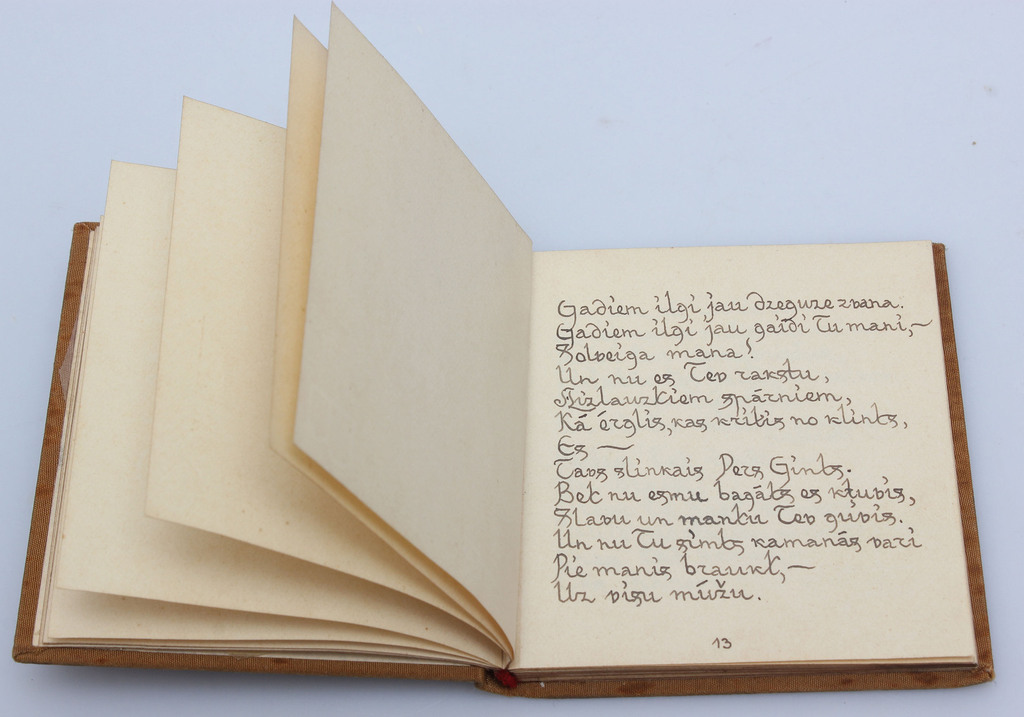 Gadiem ilgi jau dzeguze zvana.
Gadiem ilgi jau gaidi Tu mani,—
Solveiga mana!
Un nu es Tev rakstu,
Aizlauzkiem spārniem,
Kā érglis, kas kritis no klints,
Es —
Tavs slinkais Pers Gints.
Bet nu esmu bagāts es kļuvis,
Slavu un mantu Tev guvis.
Un nu Tu simts kamanās vari
Pie manis braukt,—
Uz visu mūžu.
13